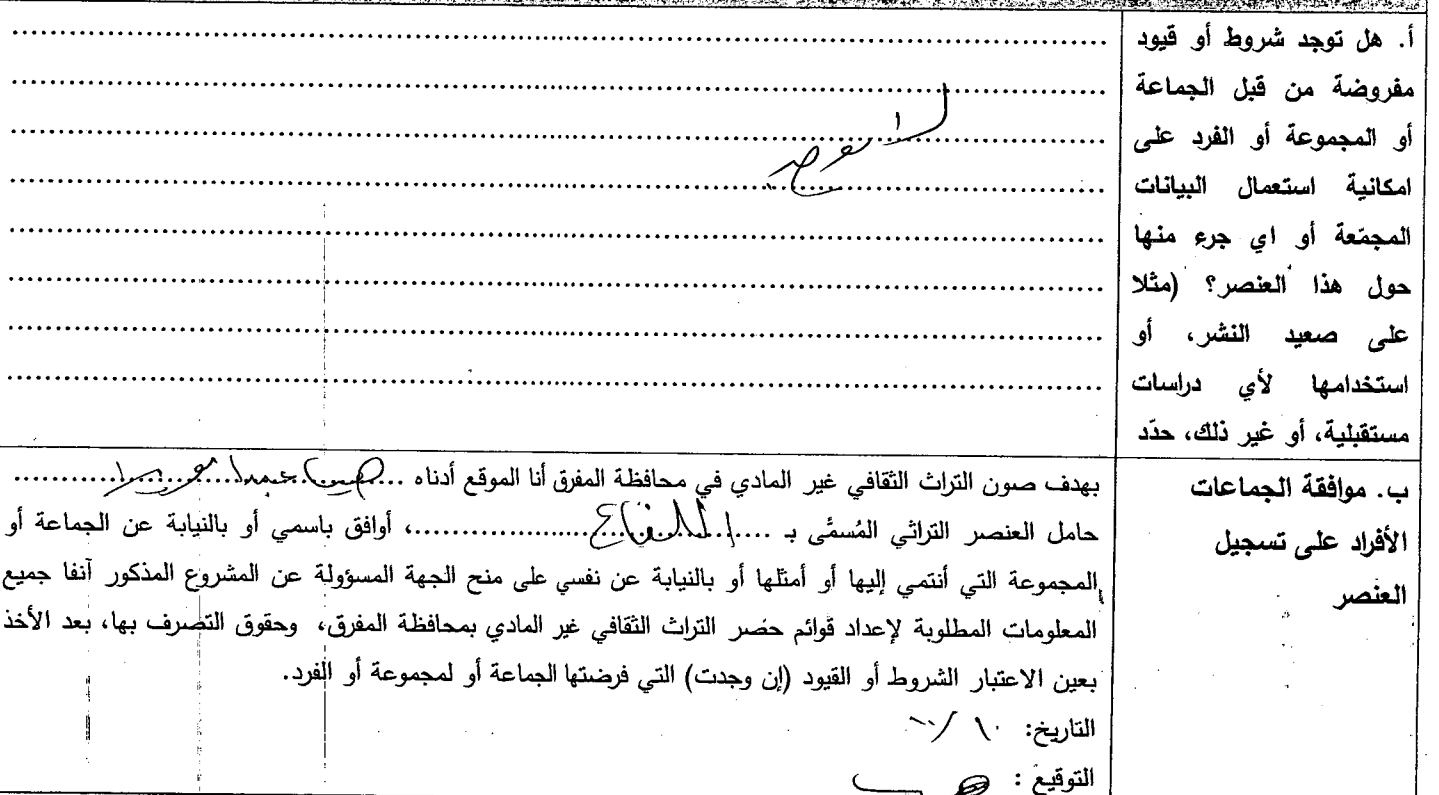 أ. هل توجد شروط أو قيود
مفروضة من قبل الجماعة
أو المجموعة أو الفرد على
امكانية استعمال البيانات
المجمّعة أو اي جرء منها
حول هذا العنصر؟ (مثلا
على صعيد النشر، أو
استخدامها لأي دراسات
مستقبلية، أو غير ذلك، حدّد
لا
ب. موافقة الجماعات
الأفراد على تسجيل
العنصر
بهدف صون التراث الثقافي غير المادي في محافظة المفرق أنا الموقع أدناه
حامل العنصر التراثي المُسمَّى بـ ، أوافق باسمي أو بالنيابة عن الجماعة أو
المجموعة التي أنتمي إليها أو أمثلها أو بالنيابة عن نفسي على منح الجهة المسؤولة عن المشروع المذكور آنفا جميع
المعلومات المطلوبة لإعداد قوائم حصر التراث الثقافي غير المادي بمحافظة المفرق، وحقوق التصرف بها، بعد الأخذ
بعين الاعتبار الشروط أو القيود (إن وجدت) التي فرضتها الجماعة أو لمجموعة أو الفرد.
التاريخ:
التوقيع :